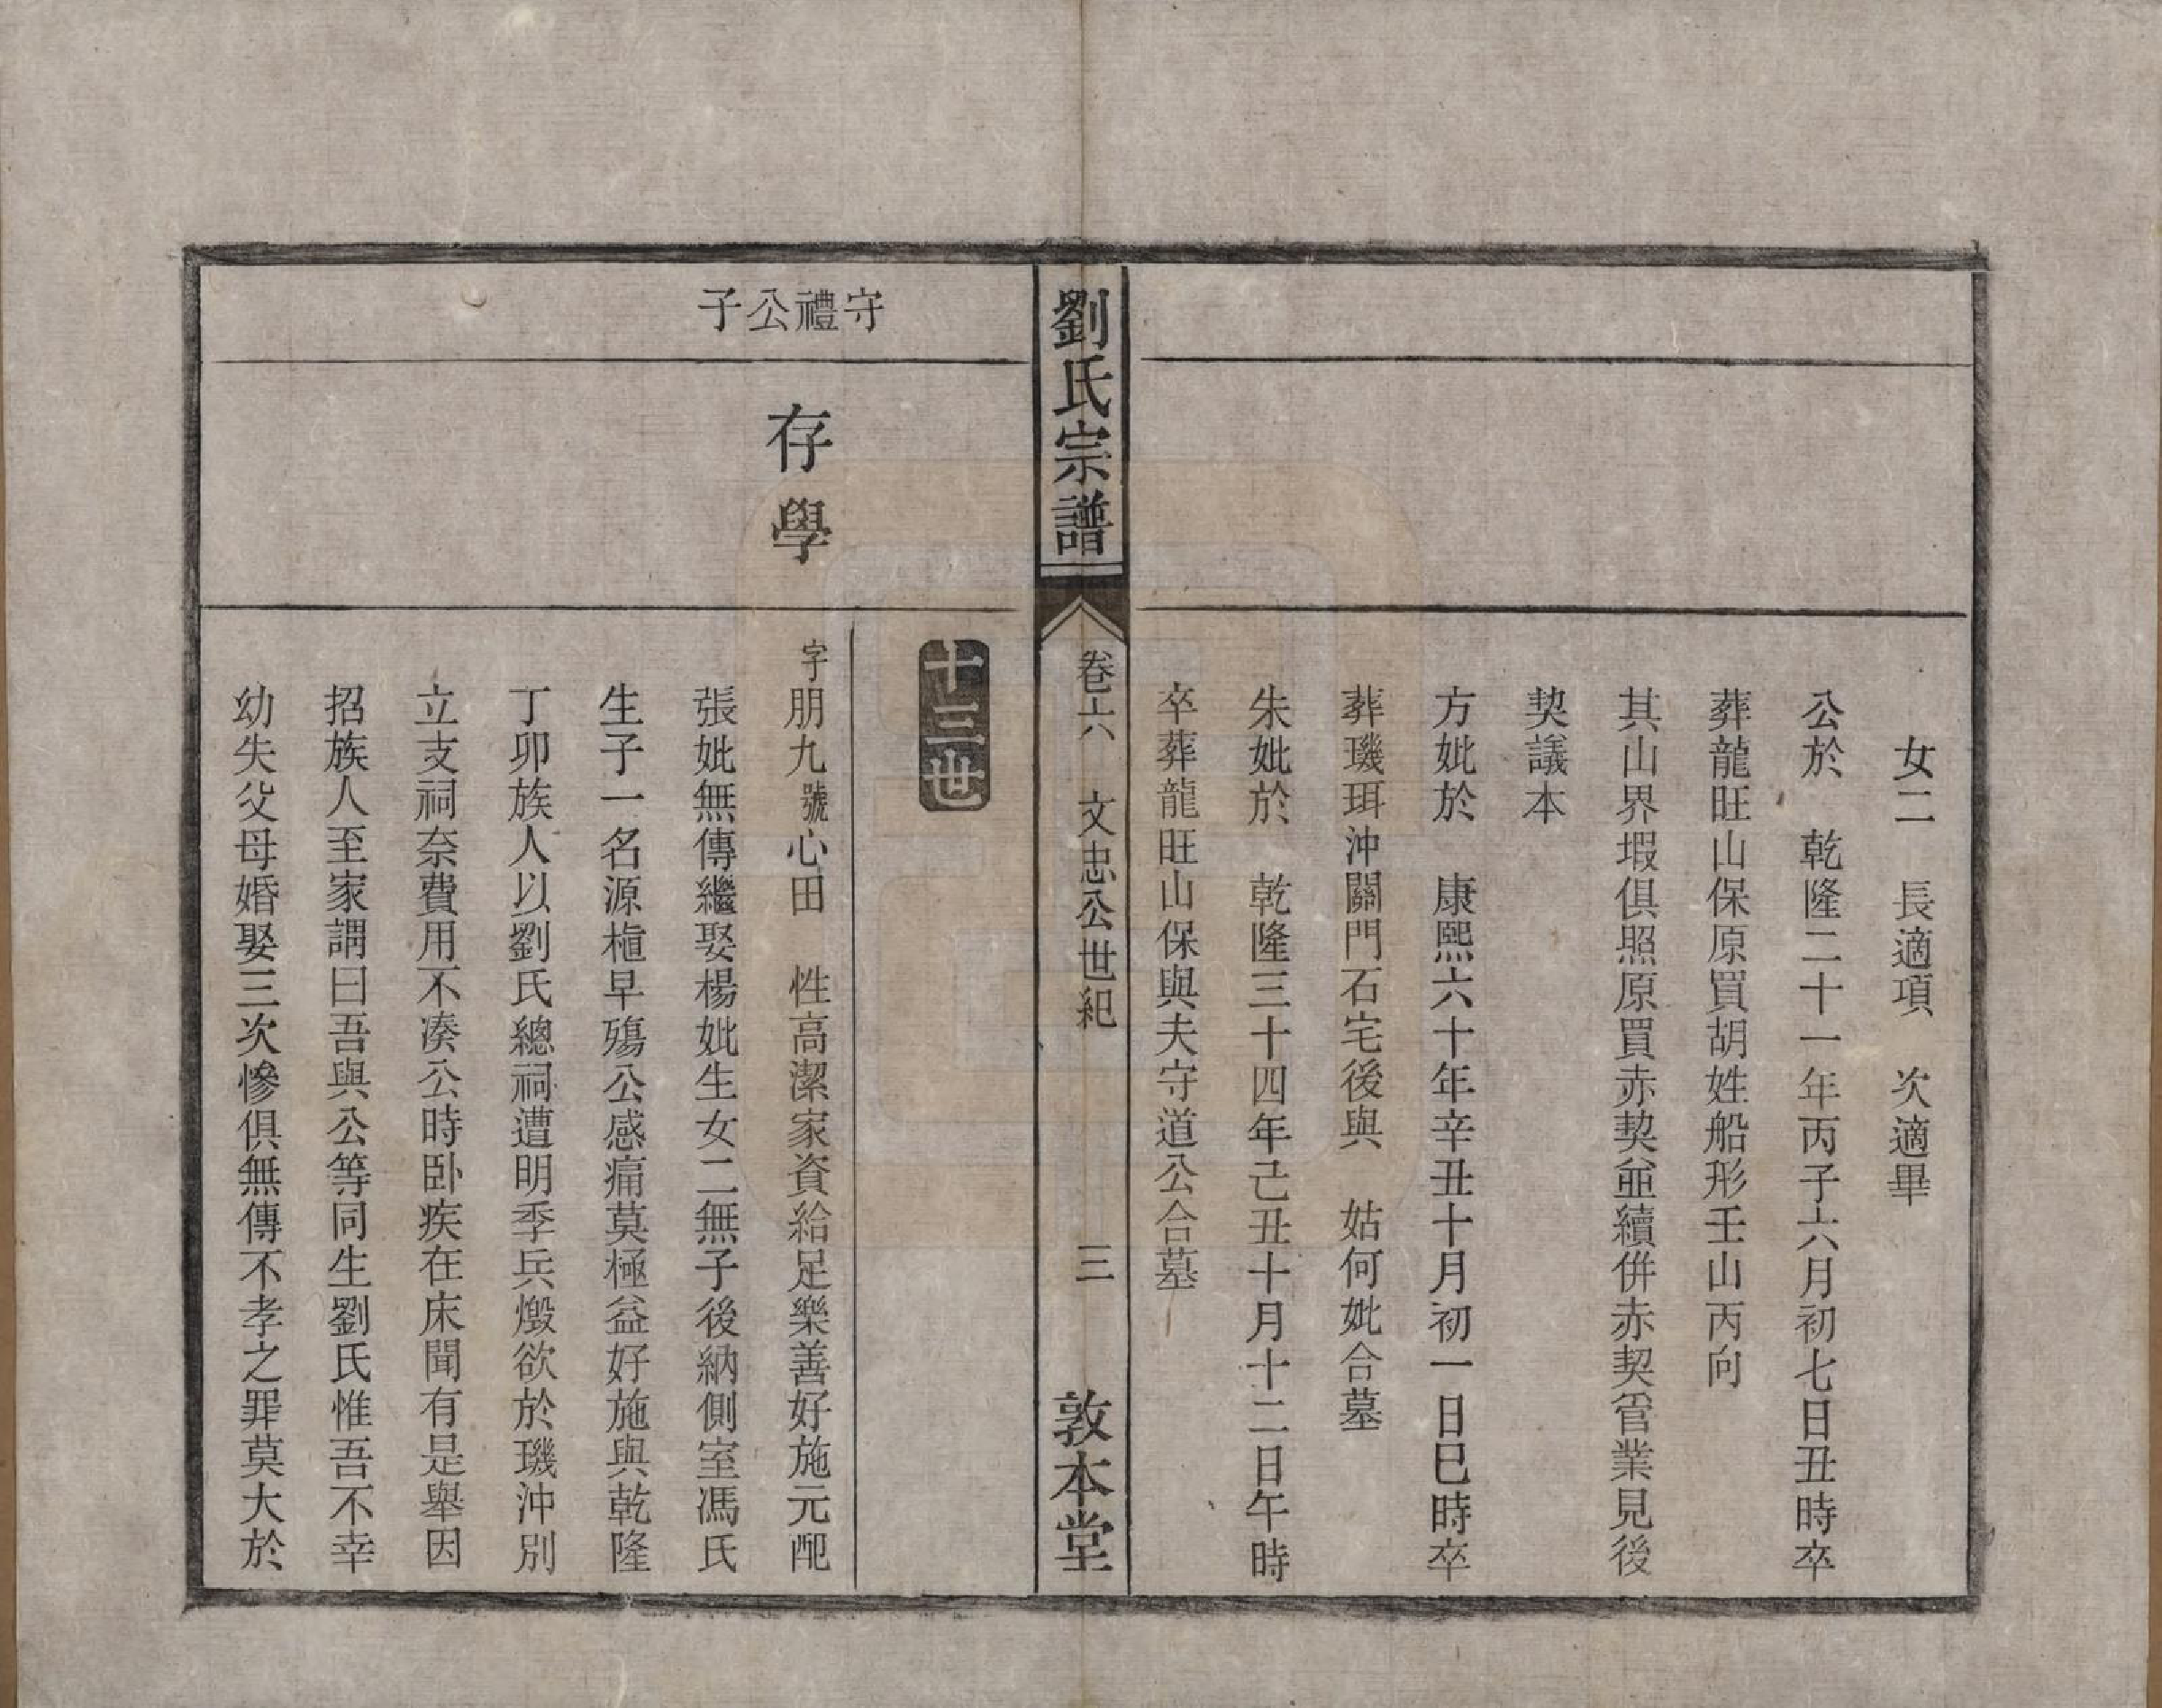 女二　長適項　次適畢
公於　乾隆二十一年丙子六月初七日丑時卒
葬龍旺山保原買胡姓船形壬山丙向
其山界塅俱照原買赤契並續併赤契管業見後
契議本
方妣於　康熙六十年辛丑十月初一日巳時卒
葬璣珥沖關門石宅後與　姑何妣合墓
朱妣於　乾隆三十四年己丑十月十二日午時
卒葬龍旺山保與夫守道公合墓
劉氏宗譜
卷六　文忠公世紀
三
敦本堂
十三世
守禮公子
存學
字朋九號心田　性高潔家資給足樂善好施元配
張妣無傳繼娶楊妣生女二無子後納側室馮氏
生子一名源植早殤公感痛莫極益好施與乾隆
丁卯族人以劉氏總祠遭明季兵燬欲於璣沖別
立支祠奈費用不湊公時卧疾在床聞有是舉因
招族人至家謂曰吾與公等同生劉氏惟吾不幸
幼失父母婚娶三次慘俱無傳不孝之罪莫大於